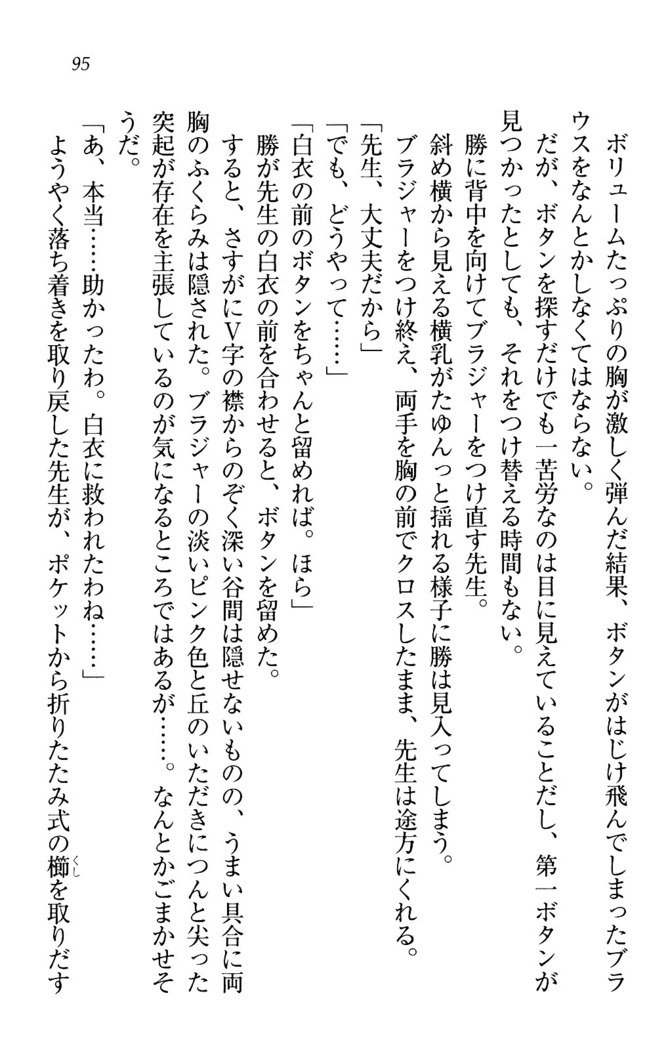 95
ボリュームたっぷりの胸が激しく弾んだ結果、ボタンがはじけ飛んでしまったブラ
ウスをなんとかしなくてはならない。
だが、ボタンを探すだけでも一苦労なのは目に見えていることだし、第一ボタンが
見つかったとしても、それをつけ替える時間もない。
勝に背中を向けてブラジャーをつけ直す先生。
斜め横から見える横乳がたゆんっと揺れる様子に勝は見入ってしまう。
ブラジャーをつけ終え、両手を胸の前でクロスしたまま、先生は途方にくれる。
「先生、大丈夫だから」
「でも、どうやって……」
「白衣の前のボタンをちゃんと留めれば。ほら」
勝が先生の白衣の前を合わせると、ボタンを留めた。
すると、さすがにV字の襟からのぞく深い谷間は隠せないものの、うまい具合に両
胸のふくらみは隠された。ブラジャーの淡いピンク色と丘のいただきにつんと尖った
突起が存在を主張しているのが気になるところではあるが……。なんとかごまかせそ
うだ。
「あ、本当……助かったわ。白衣に救われたわね……」
ようやく落ち着きを取り戻した先生が、ポケットから折りたたみ式の櫛を取りだす
くし